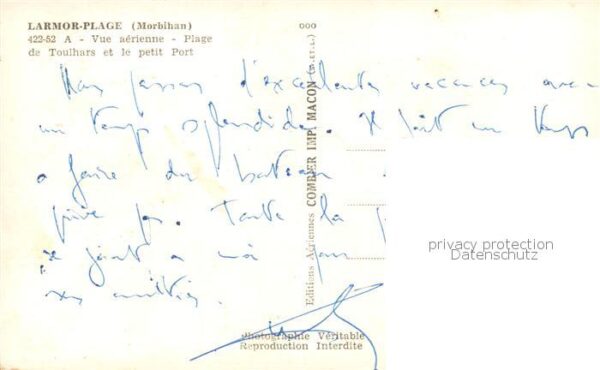 LARMOR-PLAGE (Morbihan)
422-52 A - Vue aérienne - Plage
de Toulhars et le petit Port
ooo
Editions Aériennes COMBIER IMP. MACON (S.-et-L.)
passons d'excellentes vacances avec
un temps splendide. Il fait un temps
a faire du bateau
Toute la
se joint a moi pour
ses amitiés.
Photographie Véritable
Reproduction Interdite
privacy protection
Datenschutz